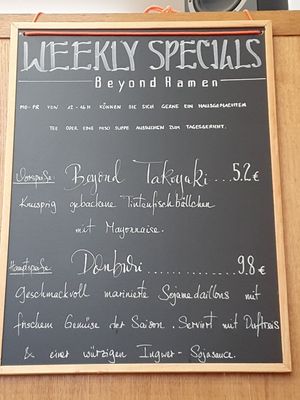 WEEKLY SPECIALS
Beyond Ramen
MO-FR VON 12-16H KÖNNEN SIE SICH GERNE EIN HAUSGEMACHTEN
TEE ODER EINE MISO SUPPE AUSSUCHEN ZUM TAGESGERICHT.
Vorspeiße: Beyond Takoyaki ...5.2€
Knusprig gebackene Tintenfischbällchen
mit Mayonnaise.
Hauptspeiße: Donburi ............... 9.8€
Geschmackvoll marinierte Sojamedaillons mit
frischem Gemüse der Saison. Serviert mit Duftreis
& einer würzigen Ingwer-Sojasauce.